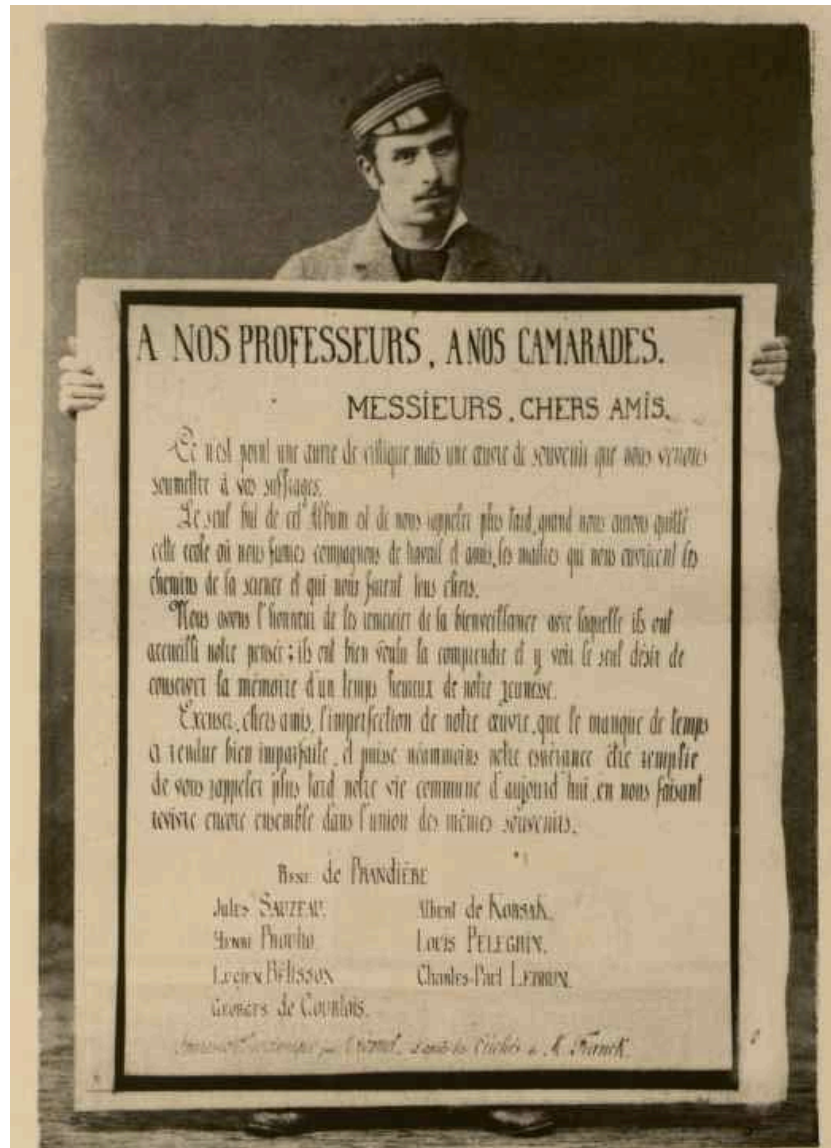 A NOS PROFESSEURS, A NOS CAMARADES.
MESSIEURS, CHERS AMIS.
Ce n'est point une œuvre de critique mais une œuvre de souvenir que nous venons
soumettre à vos suffrages.
Le seul but de cet Album est de nous rappeler plus tard, quand nous aurons quitté
cette ecole où nous fumes compagnons de travail et amis, les maîtres qui nous ouvrirent les
chemins de la science et qui nous furent tous chers.
Nous avons l'honneur de les remercier de la bienveillance avec laquelle ils ont
accueilli notre pensée; ils ont bien voulu la comprendre et y voir le seul désir de
conserver la mémoire d'un temps heureux de notre jeunesse.
Excusez, chers amis, l'imperfection de notre œuvre, que le manque de temps
a rendue bien imparfaite, et puisse néanmoins notre espérance être remplie
de vous rappeler plus tard notre vie commune d'aujourd'hui, en nous faisant
revivre encore ensemble dans l'union des mêmes souvenirs.
RENE de PRANDIÈRE
Jules SAUZEAU.
Albert de KORSAK.
HENRI PROUHO.
LOUIS PELEGRIN.
LUCIEN BÉLISSON
Charles-Paul LEBRUN.
GEORGES de COURTOIS.
d'après les Clichés de M. Franck.